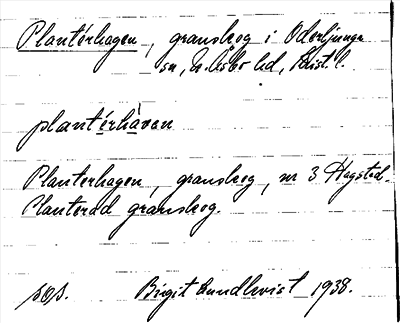 Plantérhagen, granskog i Oderljunga
sn, N. Åsbo hd, Krist. l.
plantérhàvan
Planterhagen, granskog, nr 3 Hagstad.
Planterad granskog.
sos.    Birgit Lundkvist 1938.